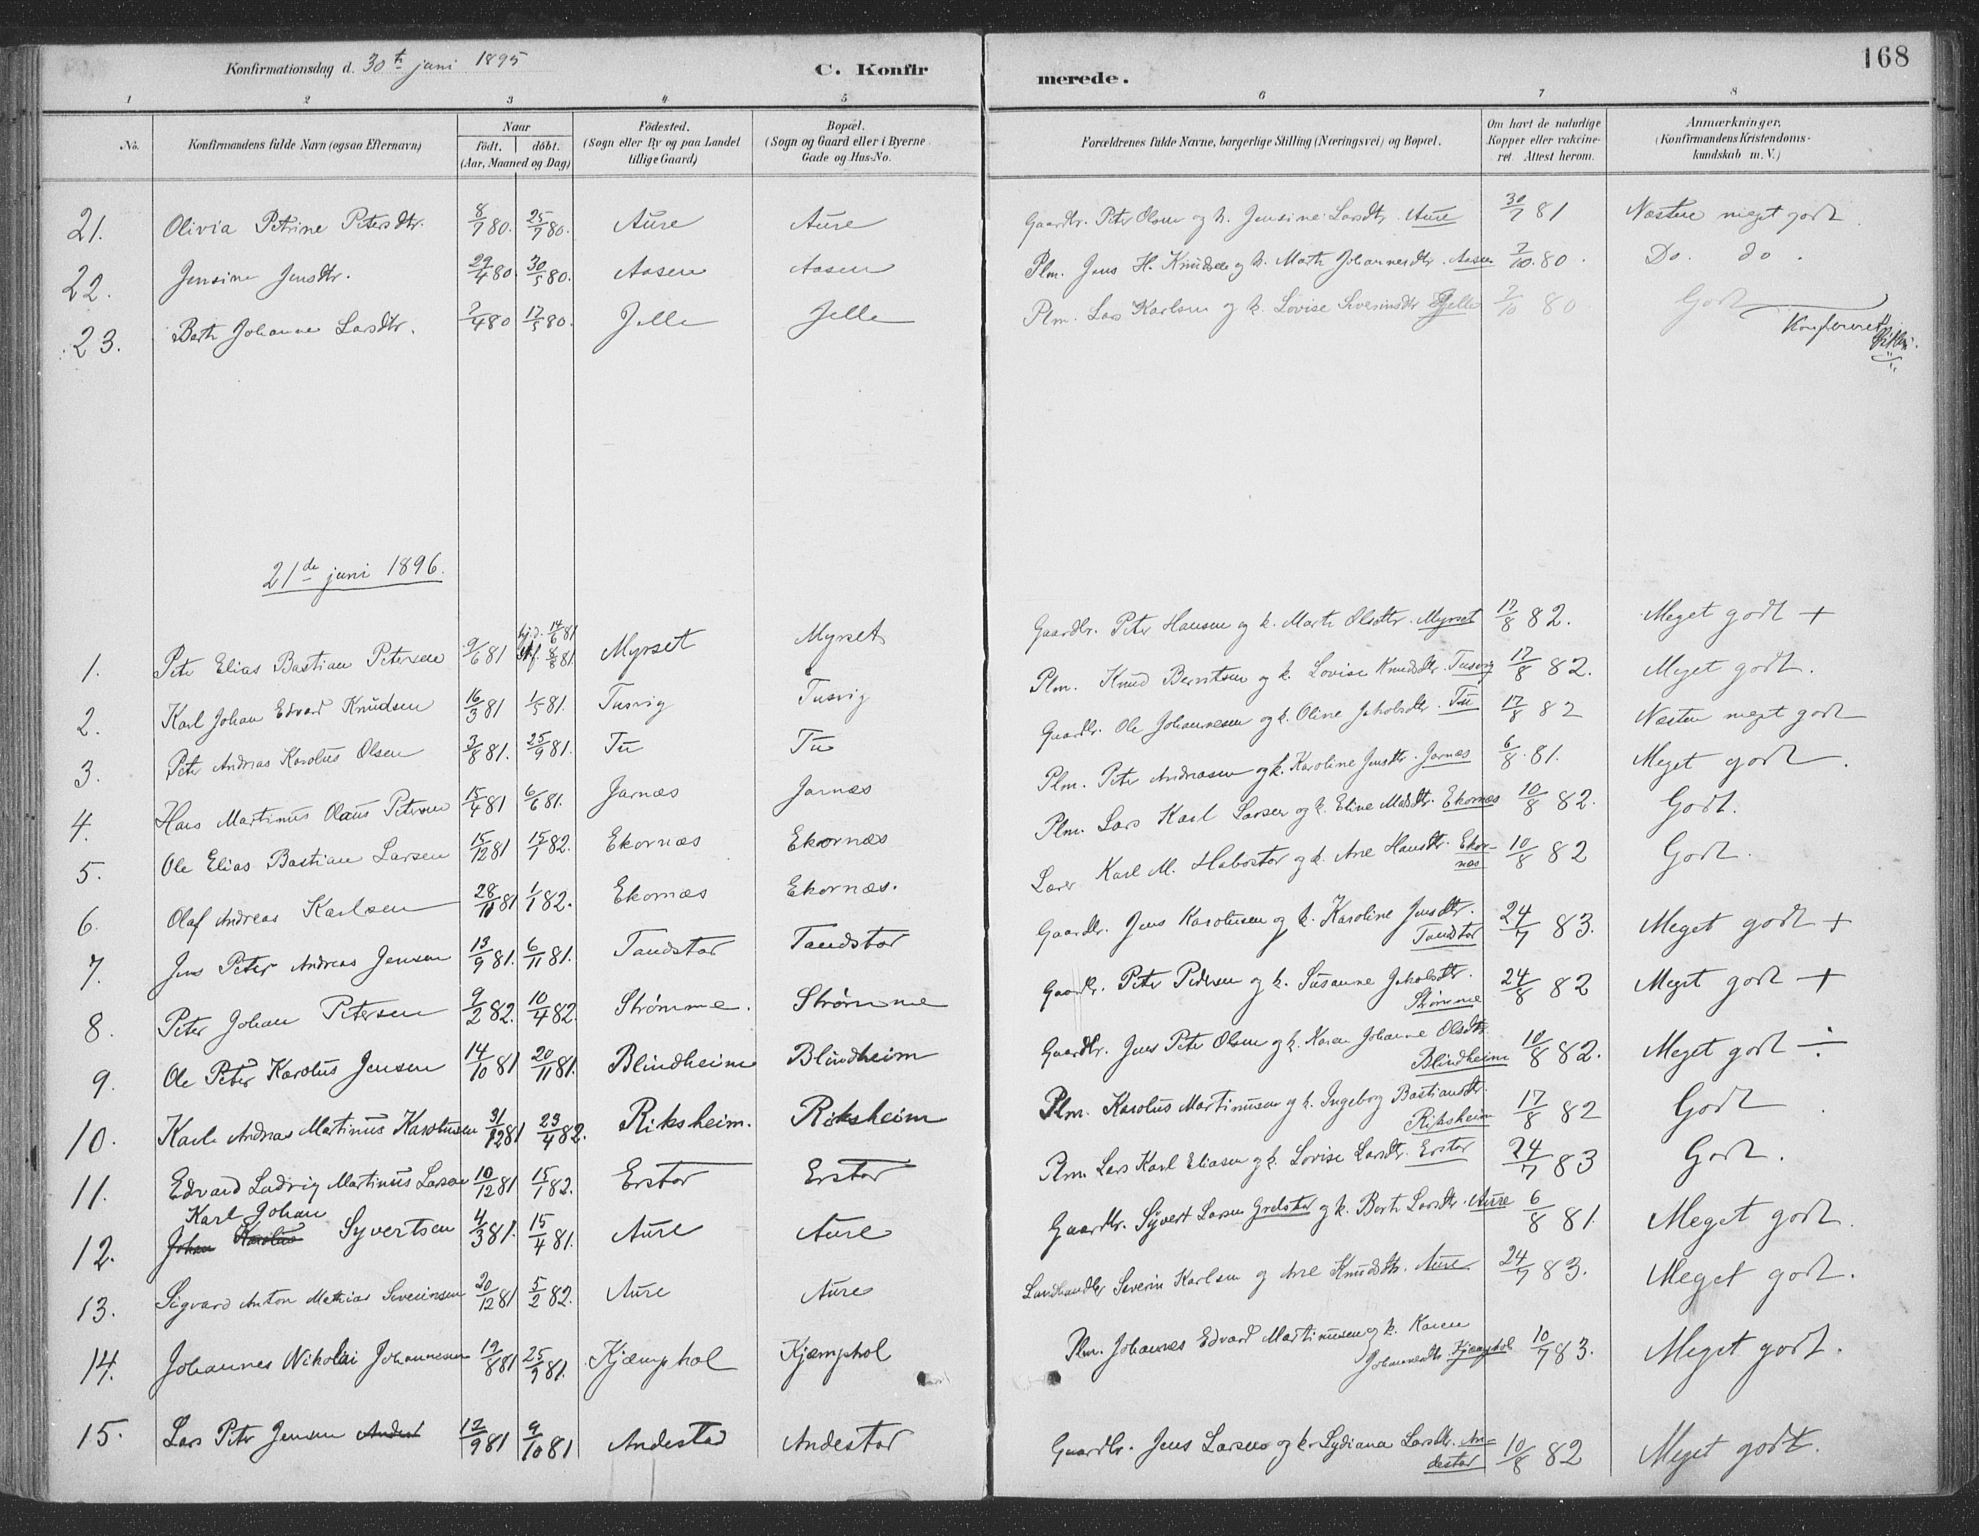 168
Konfirmationsdag d. 30te juni 1895 C. Konfirmerede.
1 2 3 4 5 6 7 8
No. Konfirmandens fulde Navn (ogsaa Efternavn) Naar født. døbt. (Aar, Maaned og Dag) Fødested. (Sogn eller By og paa Landet tillige Gaard) Bopæl. (Sogn og Gaard eller i Byerne Gade og Hus-No. Forældrenes fulde Navne, borgerlige Stilling (Næringsvei) og Bopæl. Om havt de naturlige Kopper eller vakcineret. Attest herom. Anmærkninger. (Konfirmandens Kristendomskundskab m. V.)
21. Olivia Petrine Petersdtr. 8/7 80. 25/7 80. Aure Aure Gaardbr. Peter Olsen og k. Jensine Larsdtr. Aure 30/7 81 Næsten meget godt
22. Jensine Jensdtr. 29/4 80. 30/5 80. Aasen Aasen Plm. Jens H. Knudsen og k. Marte Johannesdtr. Aasen 7/10 80. Do. do.
23. Berte Johanne Larsdtr. 7/4 80 17/5 80. Jelle Jelle Plm. Lars Karlsen og k. Lovise Severinsdtr. Jelle 7/10 80 Godt
Konfereret
21de juni 1896.
1. Peter Elias Bastian Petersen 9/6 81 hj.d. 14/6 81 st.f. 8/8 81. Myrset Myrset Gaardbr. Peter Hansen og k. Marte Olsdtr. Myrset 17/8 82. Meget godt +
2. Karl Johan Edvard Knudsen 16/3 81 1/5 81. Tusvig Tusvig Plm. Knud Berntsen og k. Lovise Knudsdtr. Tusvig 17/8 82. Meget godt.
3. Peter Andreas Karolus Olsen 3/8 81. 25/9 81. Tu Tu Gaardbr. Ole Johannesen og k. Oline Jakobsdtr. Tu 17/8 82 Næsten meget godt
4. Hans Martinus Olaus Petersen 15/4 81 6/6 81. Jarnæs Jarnæs Plm. Peter Andreasen og k. Karoline Jensdtr. Jarnæs 6/8 81. Meget godt.
5. Ole Elias Bastian Larsen 15/12 81 15/1 82. Ekornæs Ekornæs Plm. Lars Karl Larsen og k. Eline Madsdtr. Ekornæs 10/8 82. Godt.
6. Olaf Andreas Karlsen 28/11 81 1/1 82. Ekornæs Ekornæs. Lærer Karl M. Habostad og k. Ane Hansdtr. Ekornæs 10/8 82 Godt.
7. Jens Peter Andreas Jensen 13/9 81. 6/11 81. Tandstad Tandstad Gaardbr. Jens Karolusen og k. Karoline Jensdtr. Tandstad 24/7 83. Meget godt +
8. Peter Johan Petersen 9/2 82. 10/4 82. Strømme. Strømme Gaardbr. Peter Pedersen og k. Susanne Jakobsdtr. Strømme 24/8 82 Meget godt +
9. Ole Peter Karolus Jensen 14/10 81 20/11 81. Blindheim Blindheim Gaardbr. Jens Peter Olsen og k. Karen Johanne Olsdtr. Blindheim 10/8 82. Meget godt ÷
10. Karl Andreas Martinus Karolusen 31/12 81 23/4 82. Riksheim. Riksheim Plm. Karolus Martinusen og k. Ingeborg Bastiansdtr. Riksheim 17/8 82 Godt.
11. Edvard Ludvig Martinus Larsen 10/12 81 15/1 82. Erstad Erstad Plm. Lars Karl Eliasen og k. Lovise Larsdtr. Erstad 24/7 83 Godt.
Karl Johan
12. Johan Karolus Syvertsen 4/3 81. 15/4 81. Aure Aure Gaardbr. Syvert Larsen Gretstad og k. Berte Larsdtr. Aure 6/8 81. Meget godt.
13. Sigvard Anton Mathias Severinsen 20/12 81 5/2 82. Aure Aure Landhandler Severin Karlsen og Ane Knudsdtr. Aure 24/7 83. Meget godt.
14. Johannes Nikolai Johannesen 19/8 81 25/9 81. Kjæmphol Kjæmphol Plm. Johannes Edvard Martinusen og k. Karen Johannesdtr. Kjæmphol 10/7 83. Meget godt.
15. Lars Peter Jensen 12/9 81 9/10 81 Andestad Andestad Gaardbr. Jens Larsen og k. Lydiana Larsdtr. Andestad 10/8 82 Meget godt.